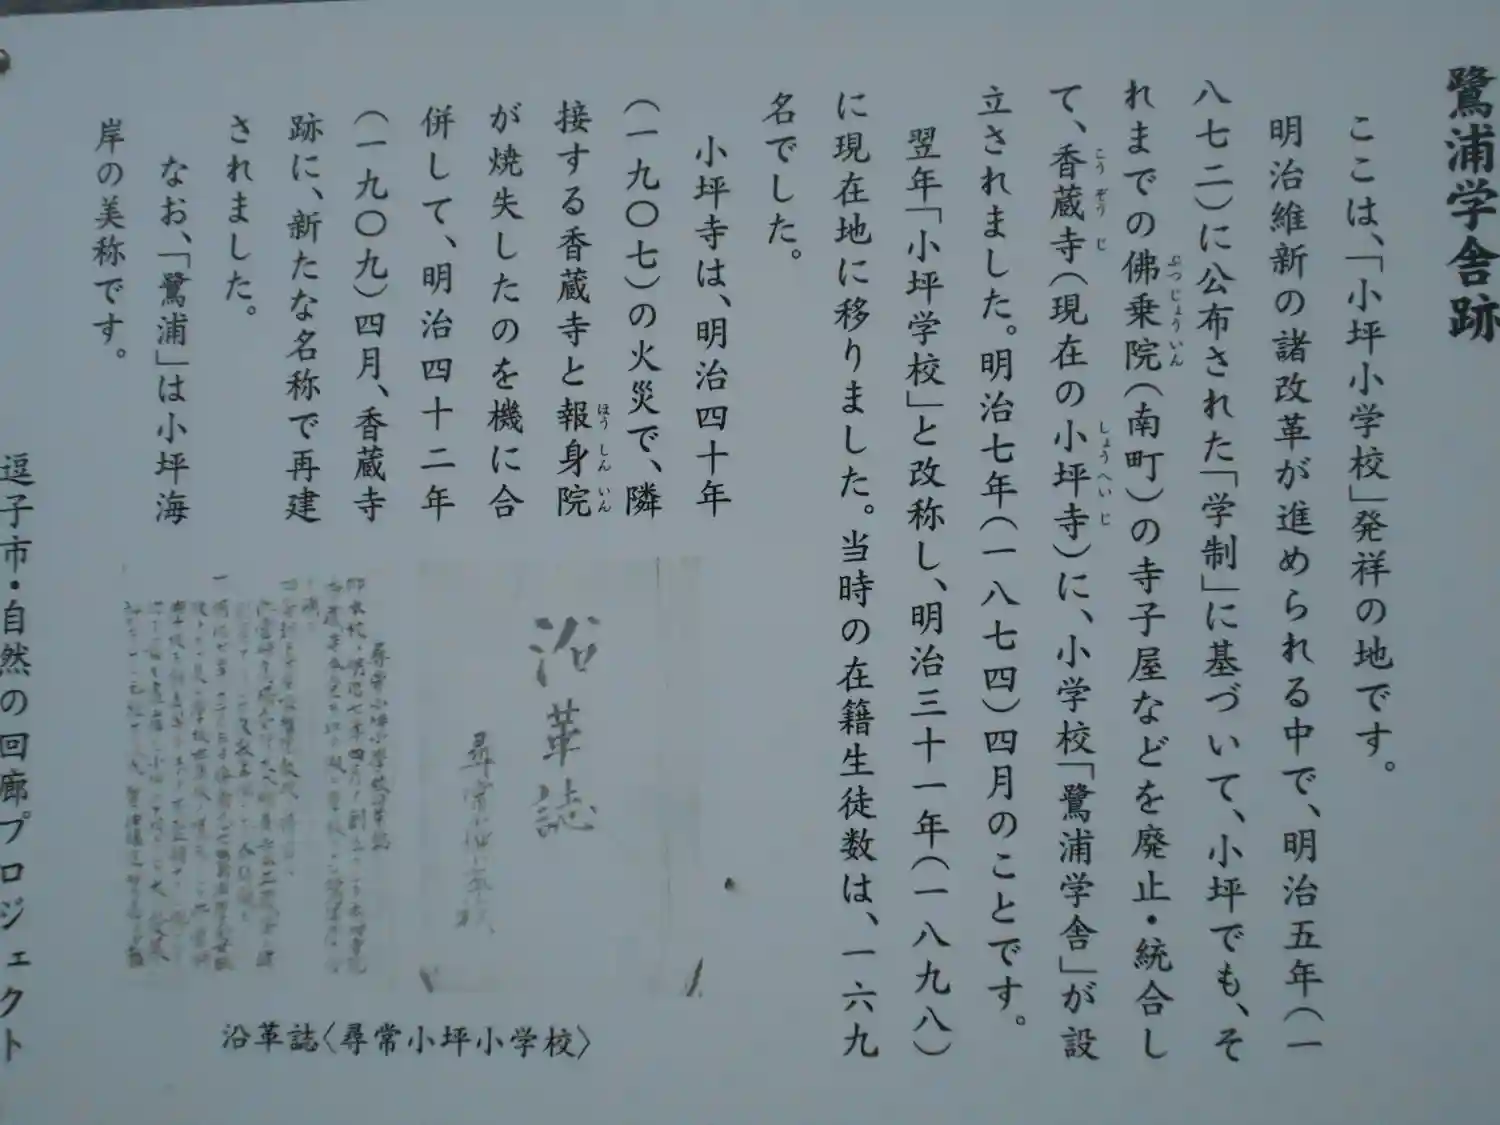 鷺浦学舎跡
ここは、「小坪小学校」発祥の地です。
明治維新の諸改革が進められる中で、明治五年(一
八七二)に公布された「学制」に基づいて、小坪でも、そ
れまでの佛乗院(南町)の寺子屋などを廃止・統合し
ぶつじょういん
て、香蔵寺(現在の小坪寺)に、小学校「鷺浦学舎」が設
こうぞうじ
しょうへいじ
立されました。明治七年(一八七四)四月のことです。
翌年「小坪学校」と改称し、明治三十一年(一八九八)
に現在地に移りました。当時の在籍生徒数は、一六九
名でした。
小坪寺は、明治四十年
(一九〇七)の火災で、隣
接する香蔵寺と報身院
ほうしんいん
が焼失したのを機に合
併して、明治四十二年
(一九〇九)四月、香蔵寺
跡に、新たな名称で再建
されました。
なお、「鷺浦」は小坪海
岸の美称です。
沿革誌
沿革誌〈尋常小坪小学校〉
逗子市・自然の回廊プロジェクト